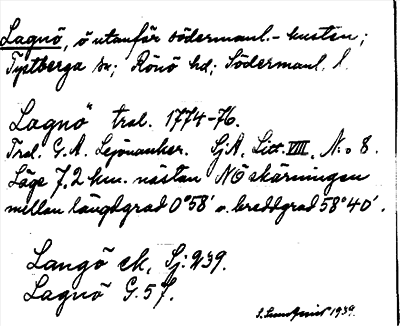 Lagnö, ö utanför södermanl.-kusten;
Tystberga sn; Rönö hd; Södermanl. l.
"Lagnö" trol. 1774-76.
Trol. G.A. Lejonanker. SjA, Litt. VIII, N:o 8.
Läge 7,2 km. nästan NÖ skärningen
mellan längdgrad 0°58' o. breddgrad 58°40'.
Langö ek, Sj: 939.
Lagnö G. 57.
1939.